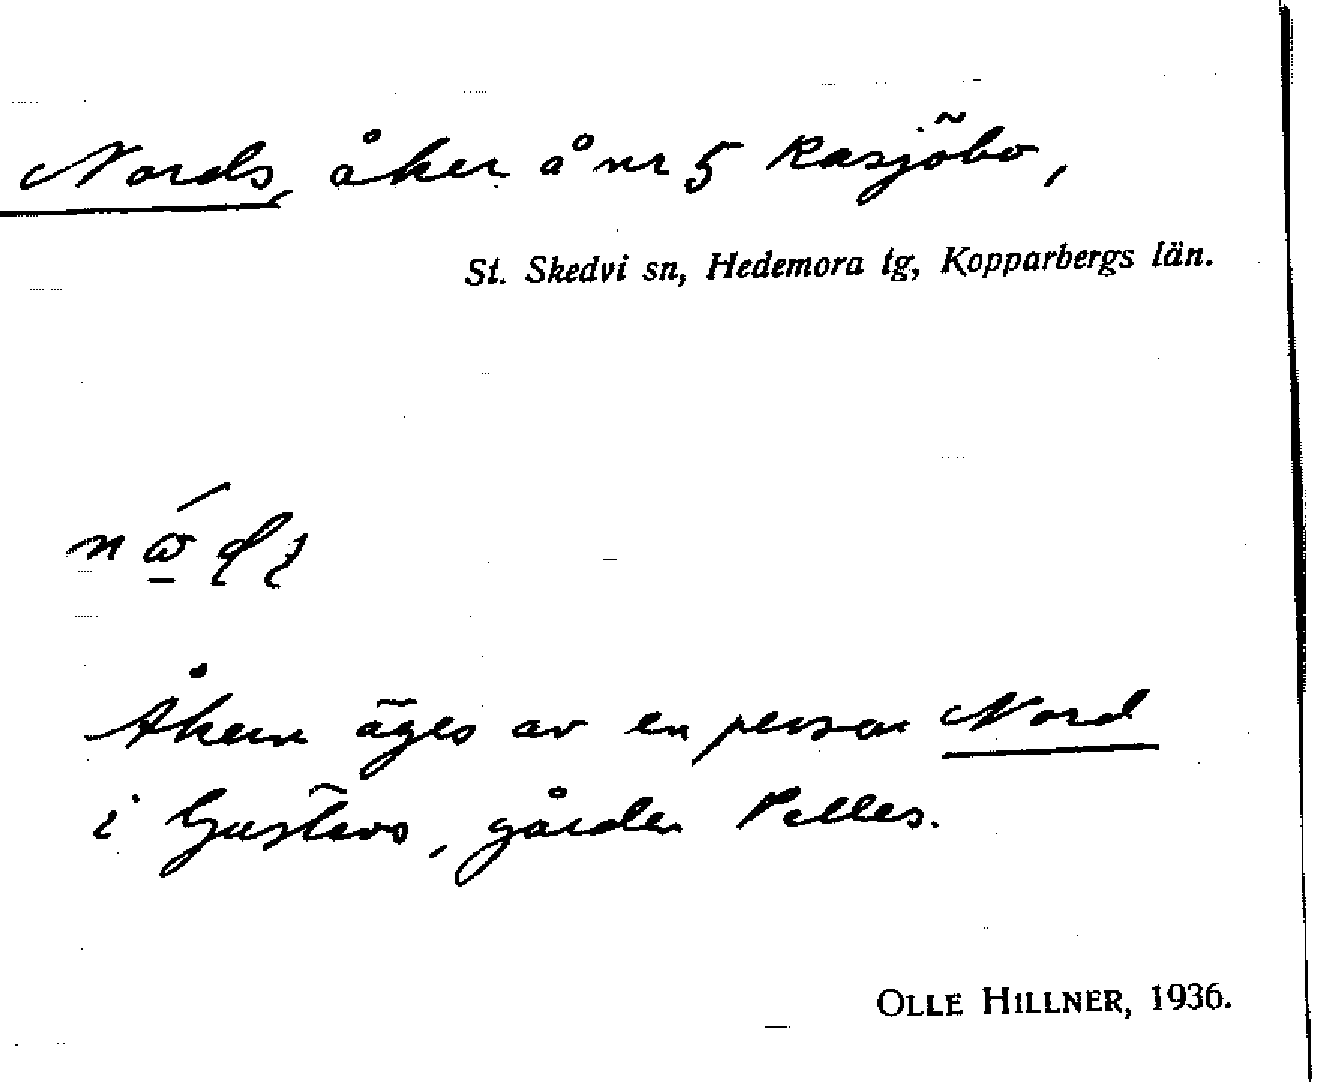 Nords, åker å nr 5 Rasjöbo,
St. Skedvi sn, Hedemora tg, Kopparbergs län.
Åkern äges av en person Nord
i Gustavs, gården Pelles.
OLLE HILLNER, 1936.